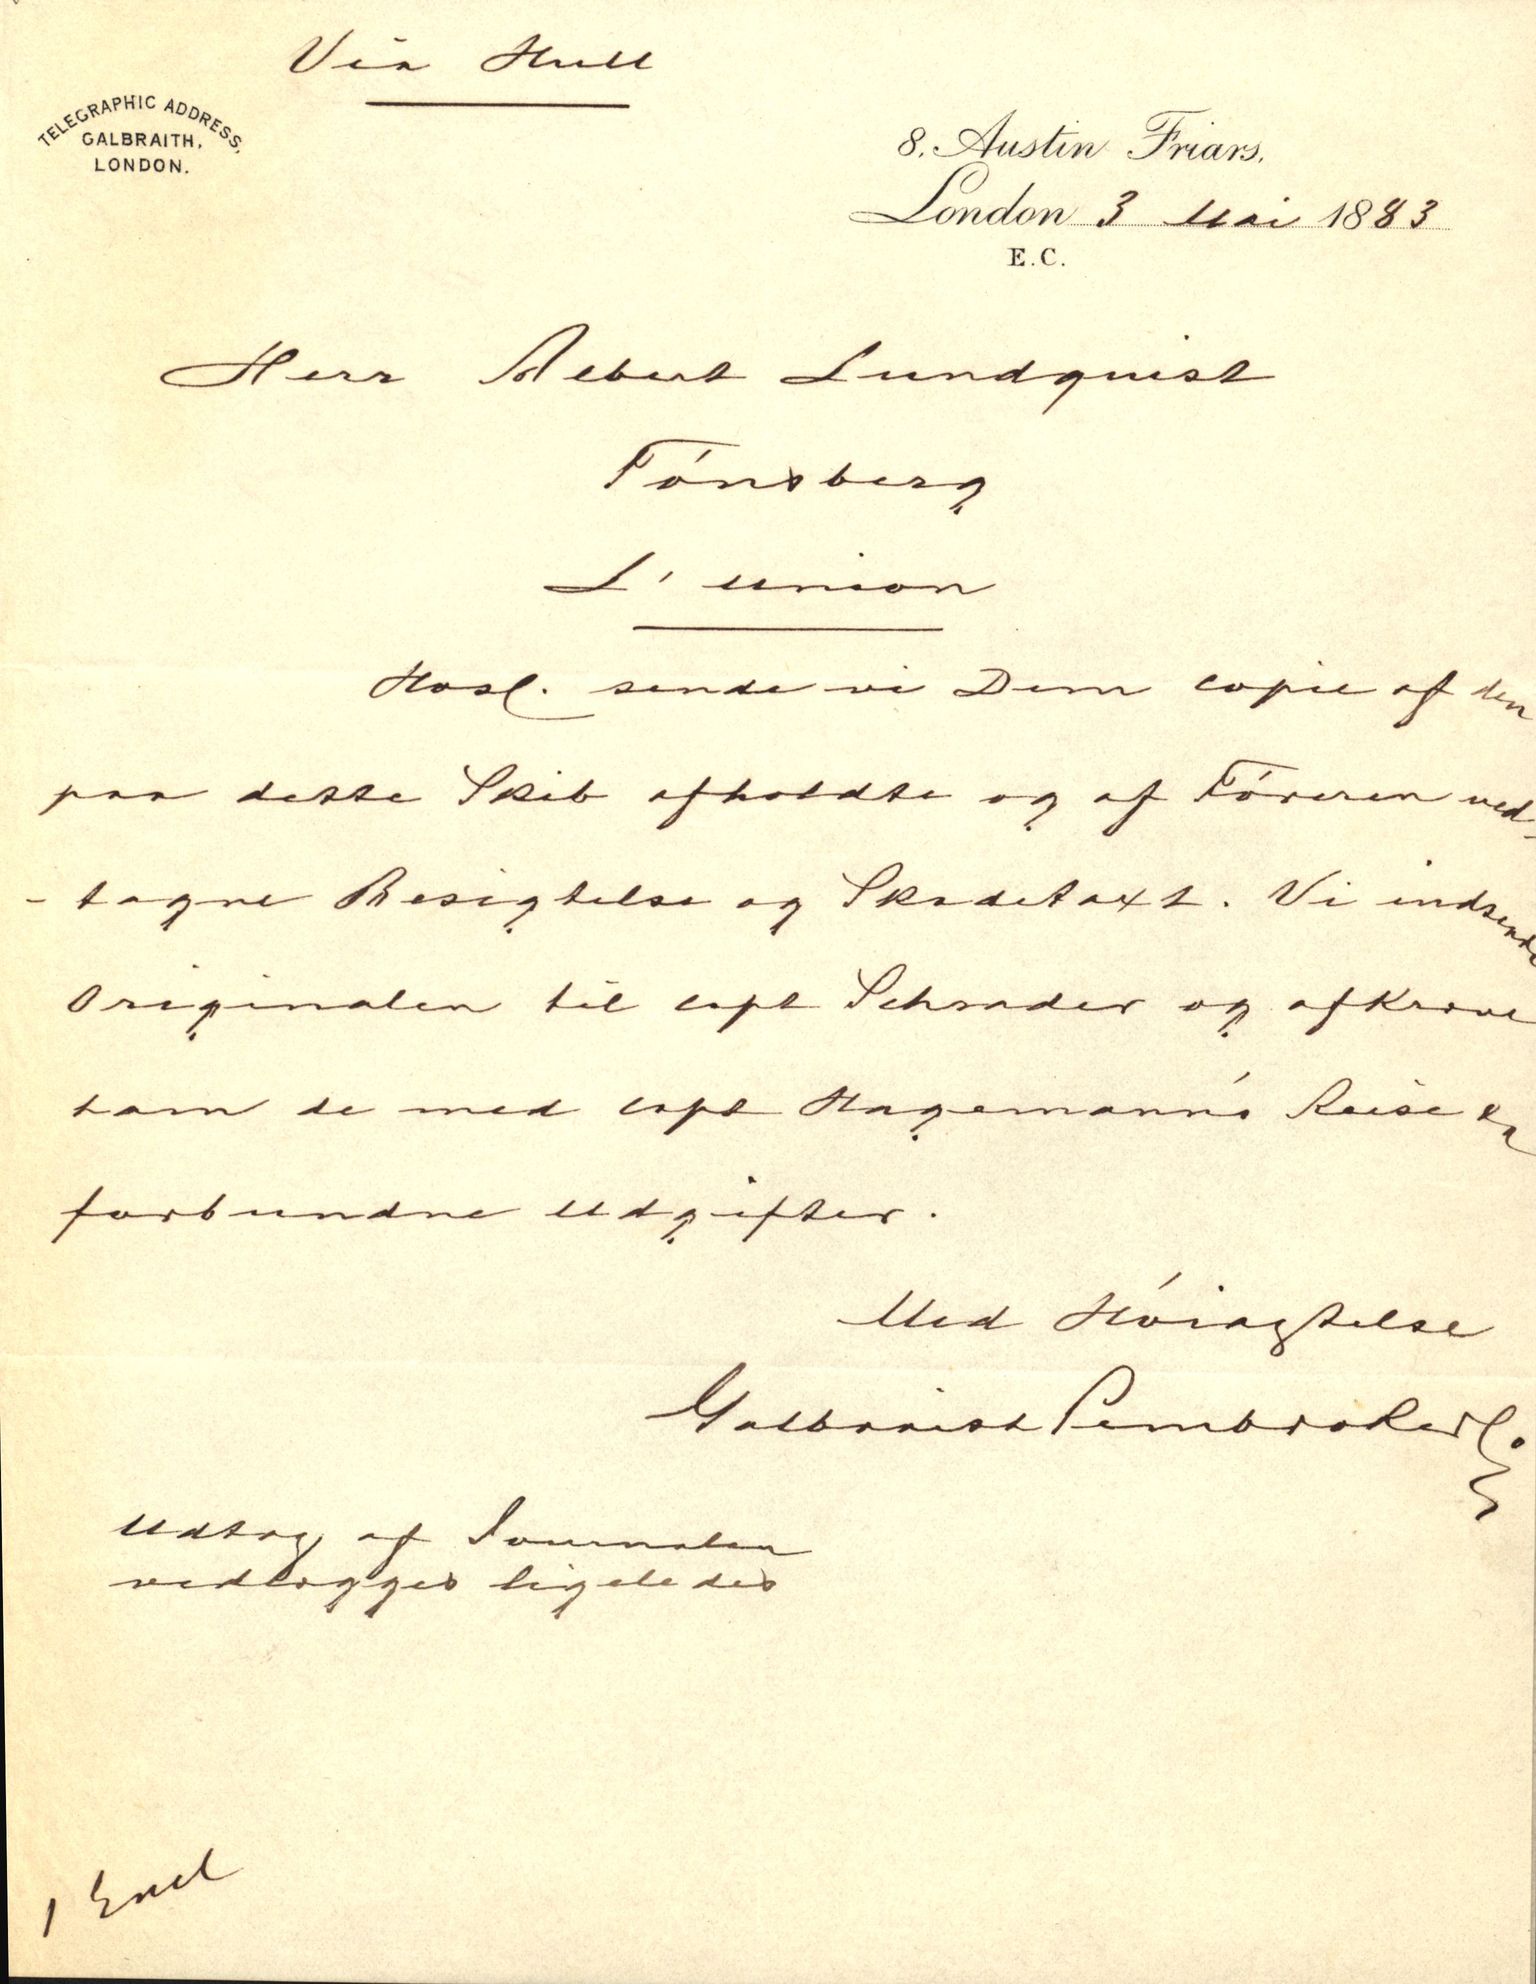 Via Hull
TELEGRAPHIC ADDRESS,
GALBRAITH,
LONDON.
8, Austin Friars,
London 3 Mai 1883
E.C.
Herr Albert Lundquist
Tónsberg
L'union
Hosl. sende vi Dem copie af den
paa dette Skib afholdte og af Fóreren ved-
-tagne Besigtelse og Skadetaxt. Vi indsende
Originalen til capt Schrader og afkræve
ham de med capt Hagemann's Reise
forbundne Udgifter.
Med Hóiagtelse
Galbraith Pembroke & Co
Udtog af Journalen
vedlægges ligeledes
1 Encl